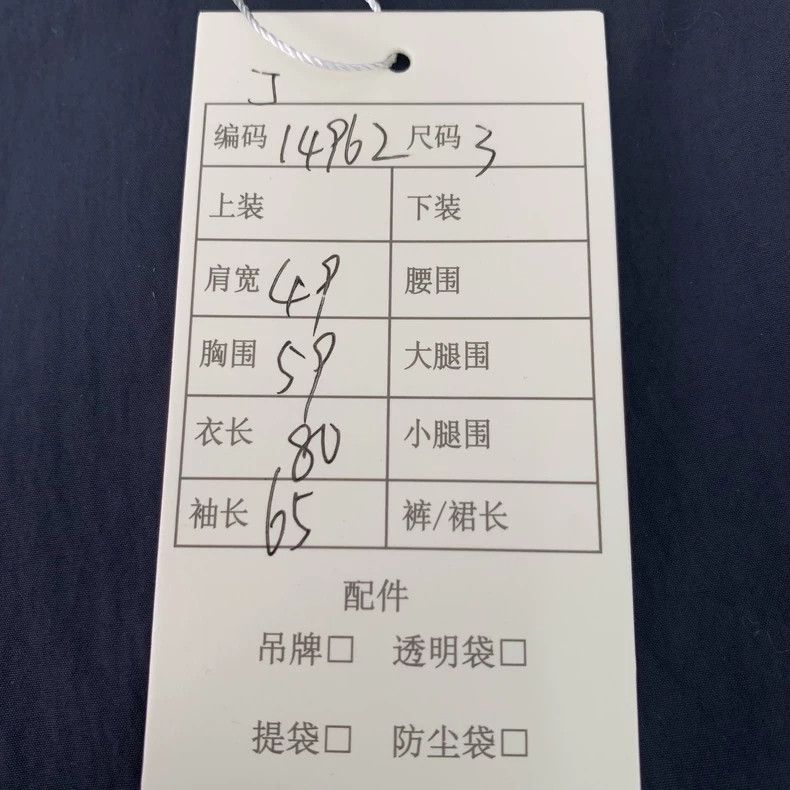 J
编码 14962 尺码 3
上装 下装
肩宽 49 腰围
胸围 59 大腿围
衣长 80 小腿围
袖长 65 裤/裙长
配件
吊牌□ 透明袋□
提袋□ 防尘袋□